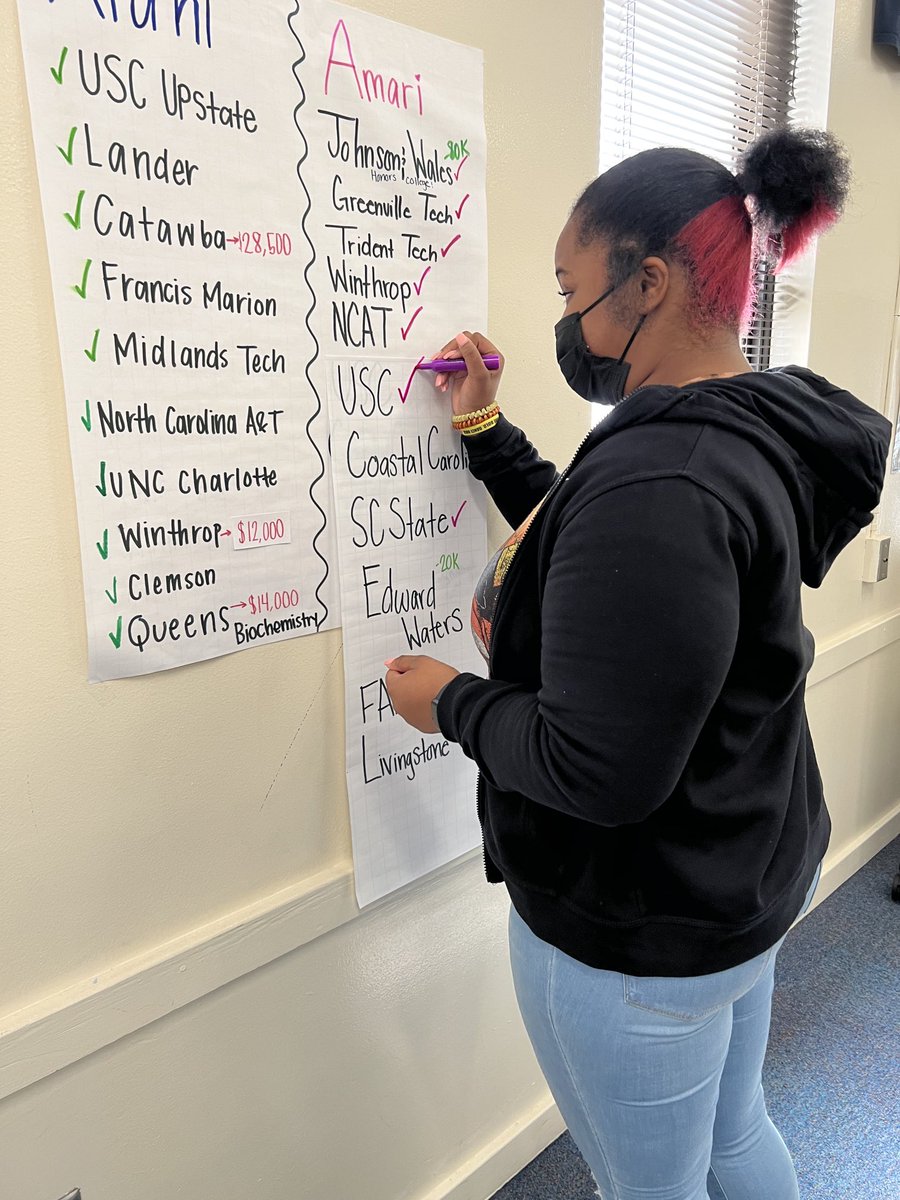 ✓ USC Upstate
✓ Lander
✓ Catawba → $28,500
✓ Francis Marion
✓ Midlands Tech
✓ North Carolina A&T
✓ UNC Charlotte
✓ Winthrop → $12,000
✓ Clemson
✓ Queens → $14,000
Biochemistry
Amari
Johnson & Wales ✓ 80K
Honors College!
Greenville Tech ✓
Trident Tech ✓
Winthrop ✓
NCAT ✓
USC ✓
Coastal
SC State ✓
Edward -20K
Waters
Livingstone